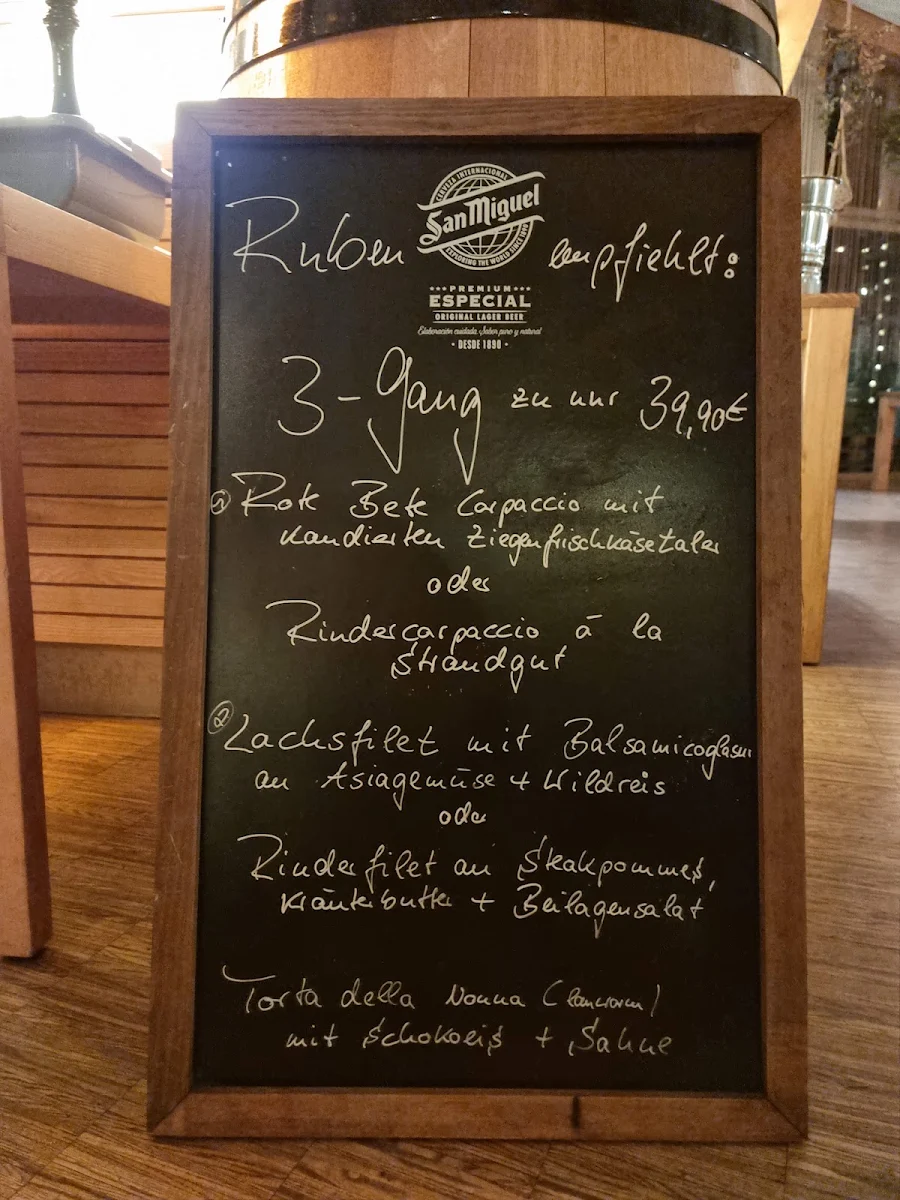 CERVEZA INTERNACIONAL
San Miguel
EXPLORING THE WORLD SINCE 1890
Ruben empfiehlt:
PREMIUM
ESPECIAL
ORIGINAL LAGER BEER
Elaboración cuidada, Sabor puro y natural
• DESDE 1890 •
3-Gang zu nur 39,90€
① Rote Bete Carpaccio mit
kandierten Ziegenfrischkäsetaler
oder
Rindercarpaccio á la
Strandgut
② Lachsfilet mit Balsamicoglasur
an Asiagemüse + Wildreis
oder
Rinderfilet an Steakpommes,
Kräuterbutter + Beilagensalat
Torta della Nonna (lauwarm)
mit Schokoeis + Sahne